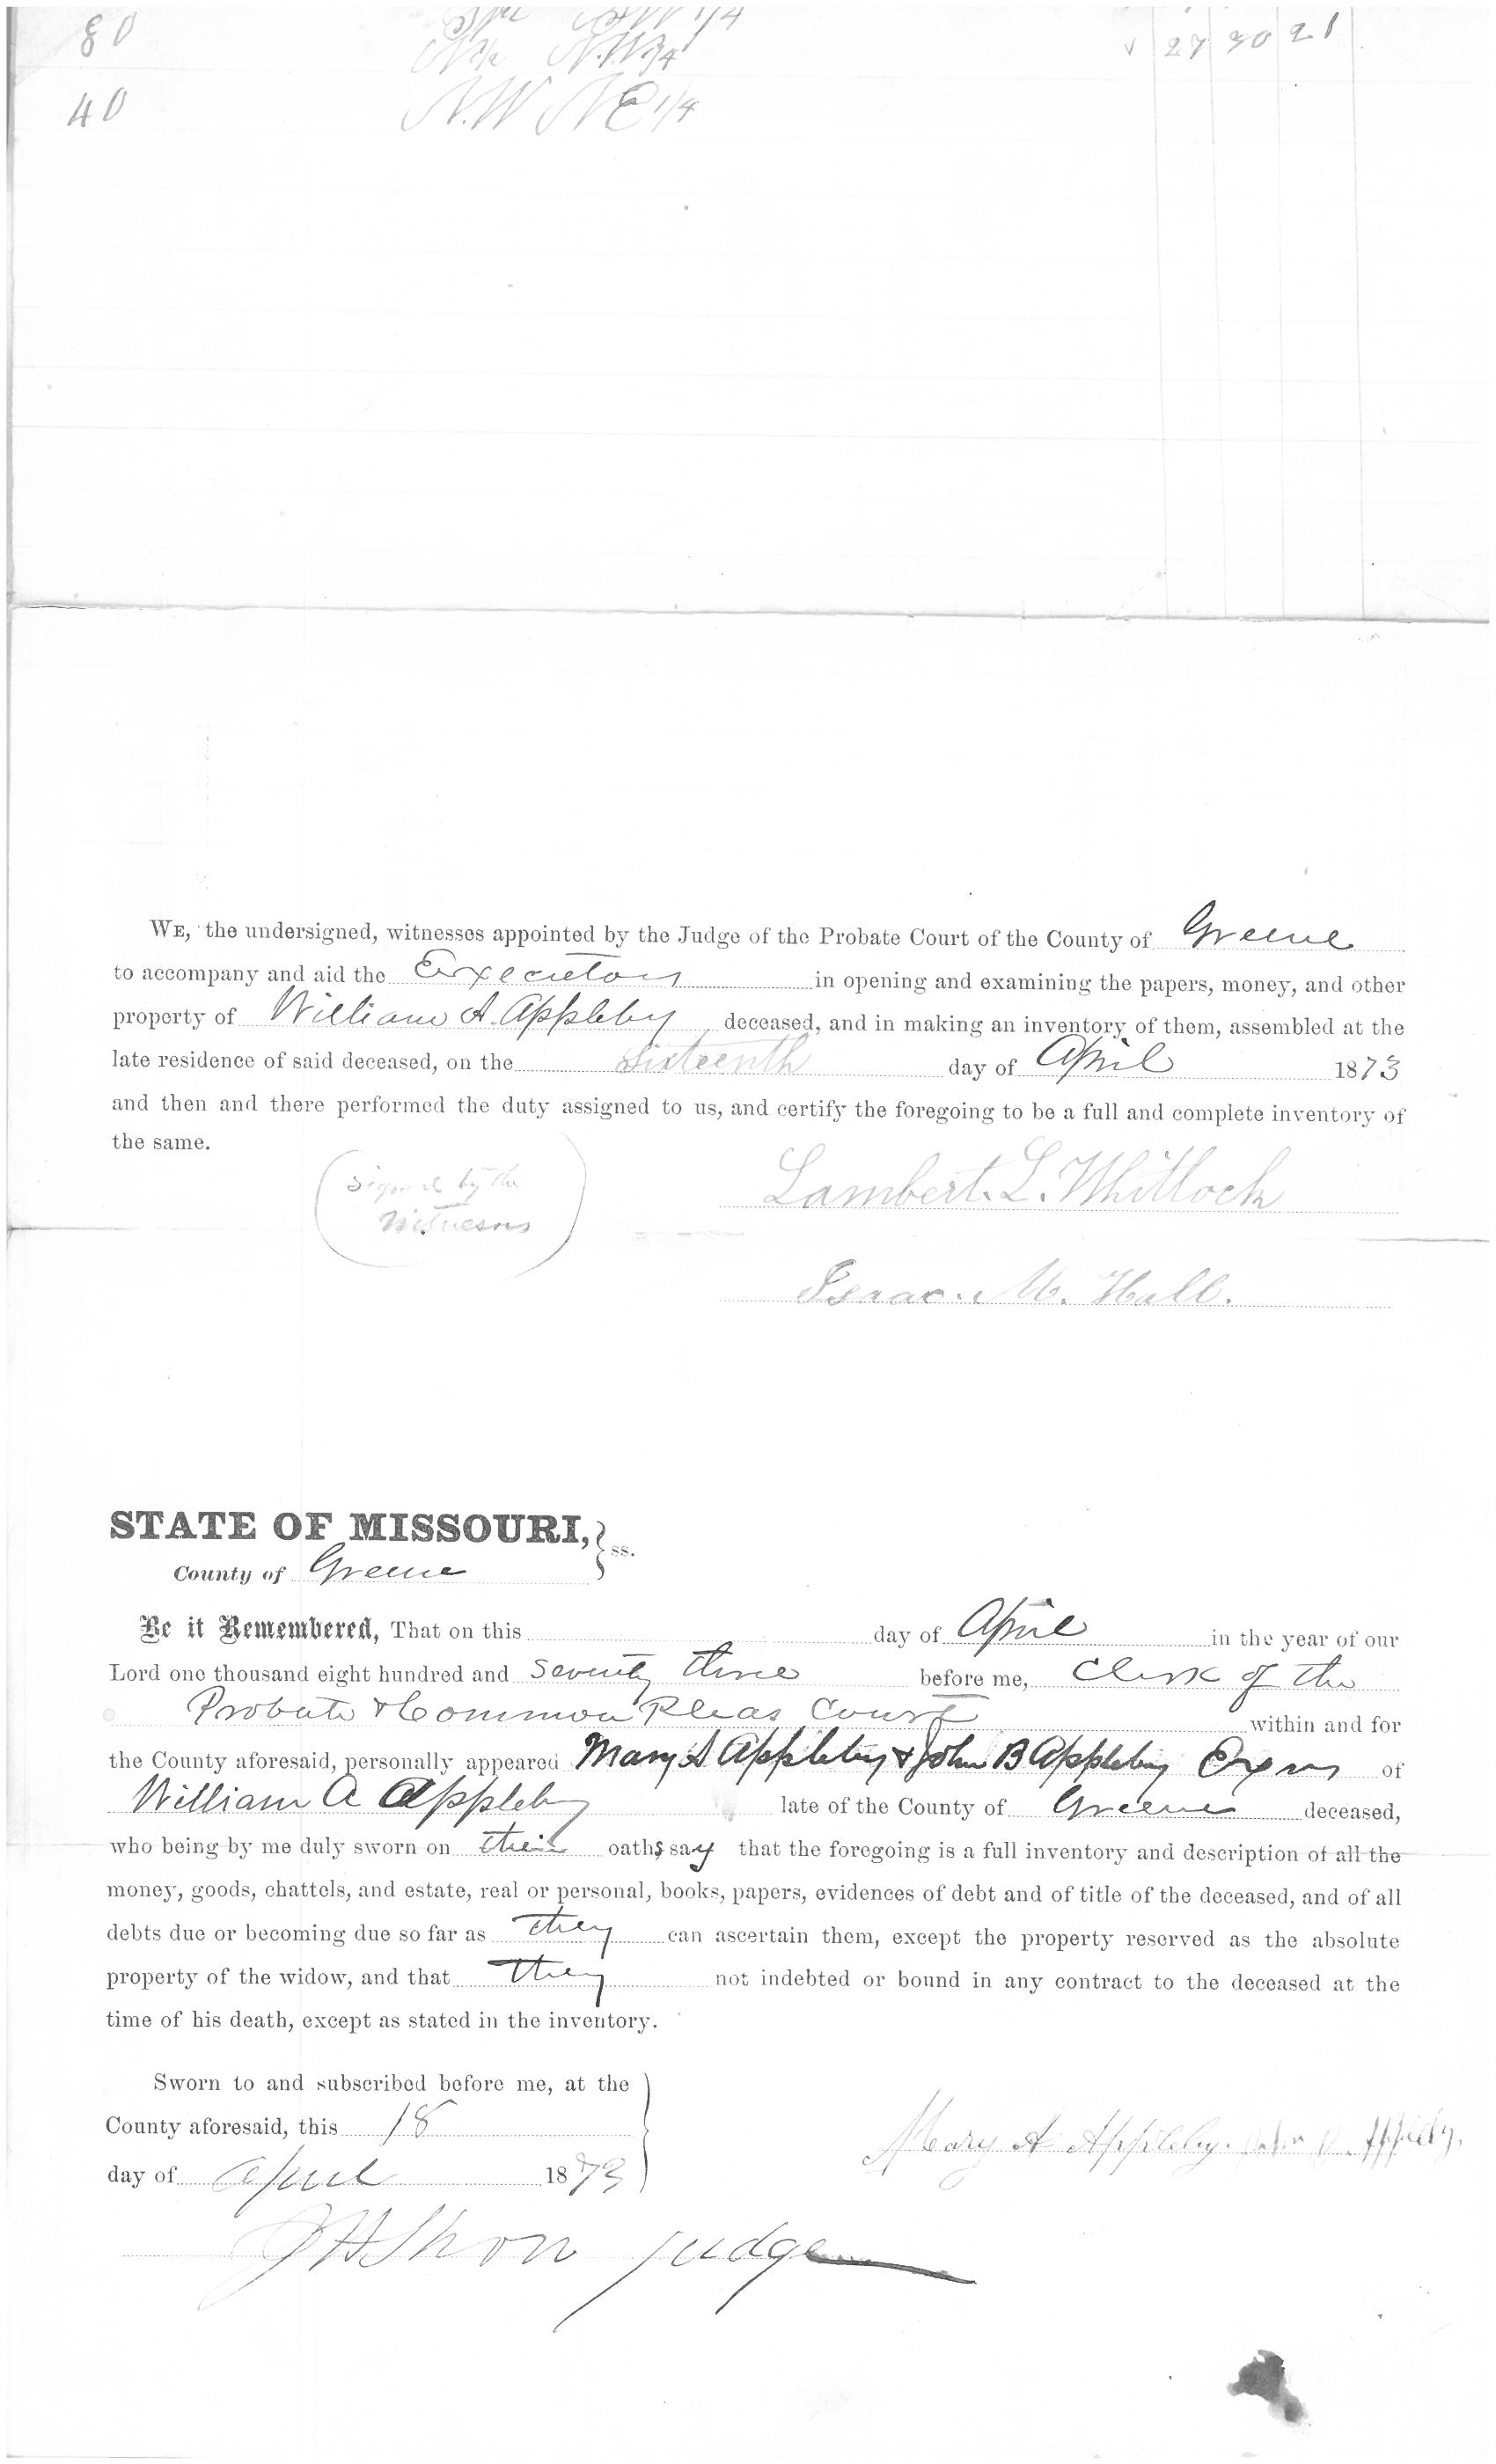 80 1/4 27 30 21
N.W 1/4
40 N.W NE 1/4
WE, the undersigned, witnesses appointed by the Judge of the Probate Court of the County of Greene
to accompany and aid the Executors in opening and examining the papers, money, and other
property of William A. Appleby deceased, and in making an inventory of them, assembled at the
late residence of said deceased, on the Sixteenth day of April 1873
and then and there performed the duty assigned to us, and certify the foregoing to be a full and complete inventory of
the same.
(Signed by the
Witnesses)
Lambert. L. Whitlock
Isaac. M. Hall.
STATE OF MISSOURI, } ss.
County of Greene
Be it Remembered, That on this day of April in the year of our
Lord one thousand eight hundred and Seventy three before me, Clerk of the
Probate & Common Pleas Court within and for
the County aforesaid, personally appeared Mary A Appleby & John B Appleby Exrs of
William A Appleby late of the County of Greene deceased,
who being by me duly sworn on their oaths say that the foregoing is a full inventory and description of all the
money, goods, chattels, and estate, real or personal, books, papers, evidences of debt and of title of the deceased, and of all
debts due or becoming due so far as they can ascertain them, except the property reserved as the absolute
property of the widow, and that they not indebted or bound in any contract to the deceased at the
time of his death, except as stated in the inventory.
Sworn to and subscribed before me, at the
County aforesaid, this 18
day of April 1873
Mary A Appleby. John B. Appleby.
Judge